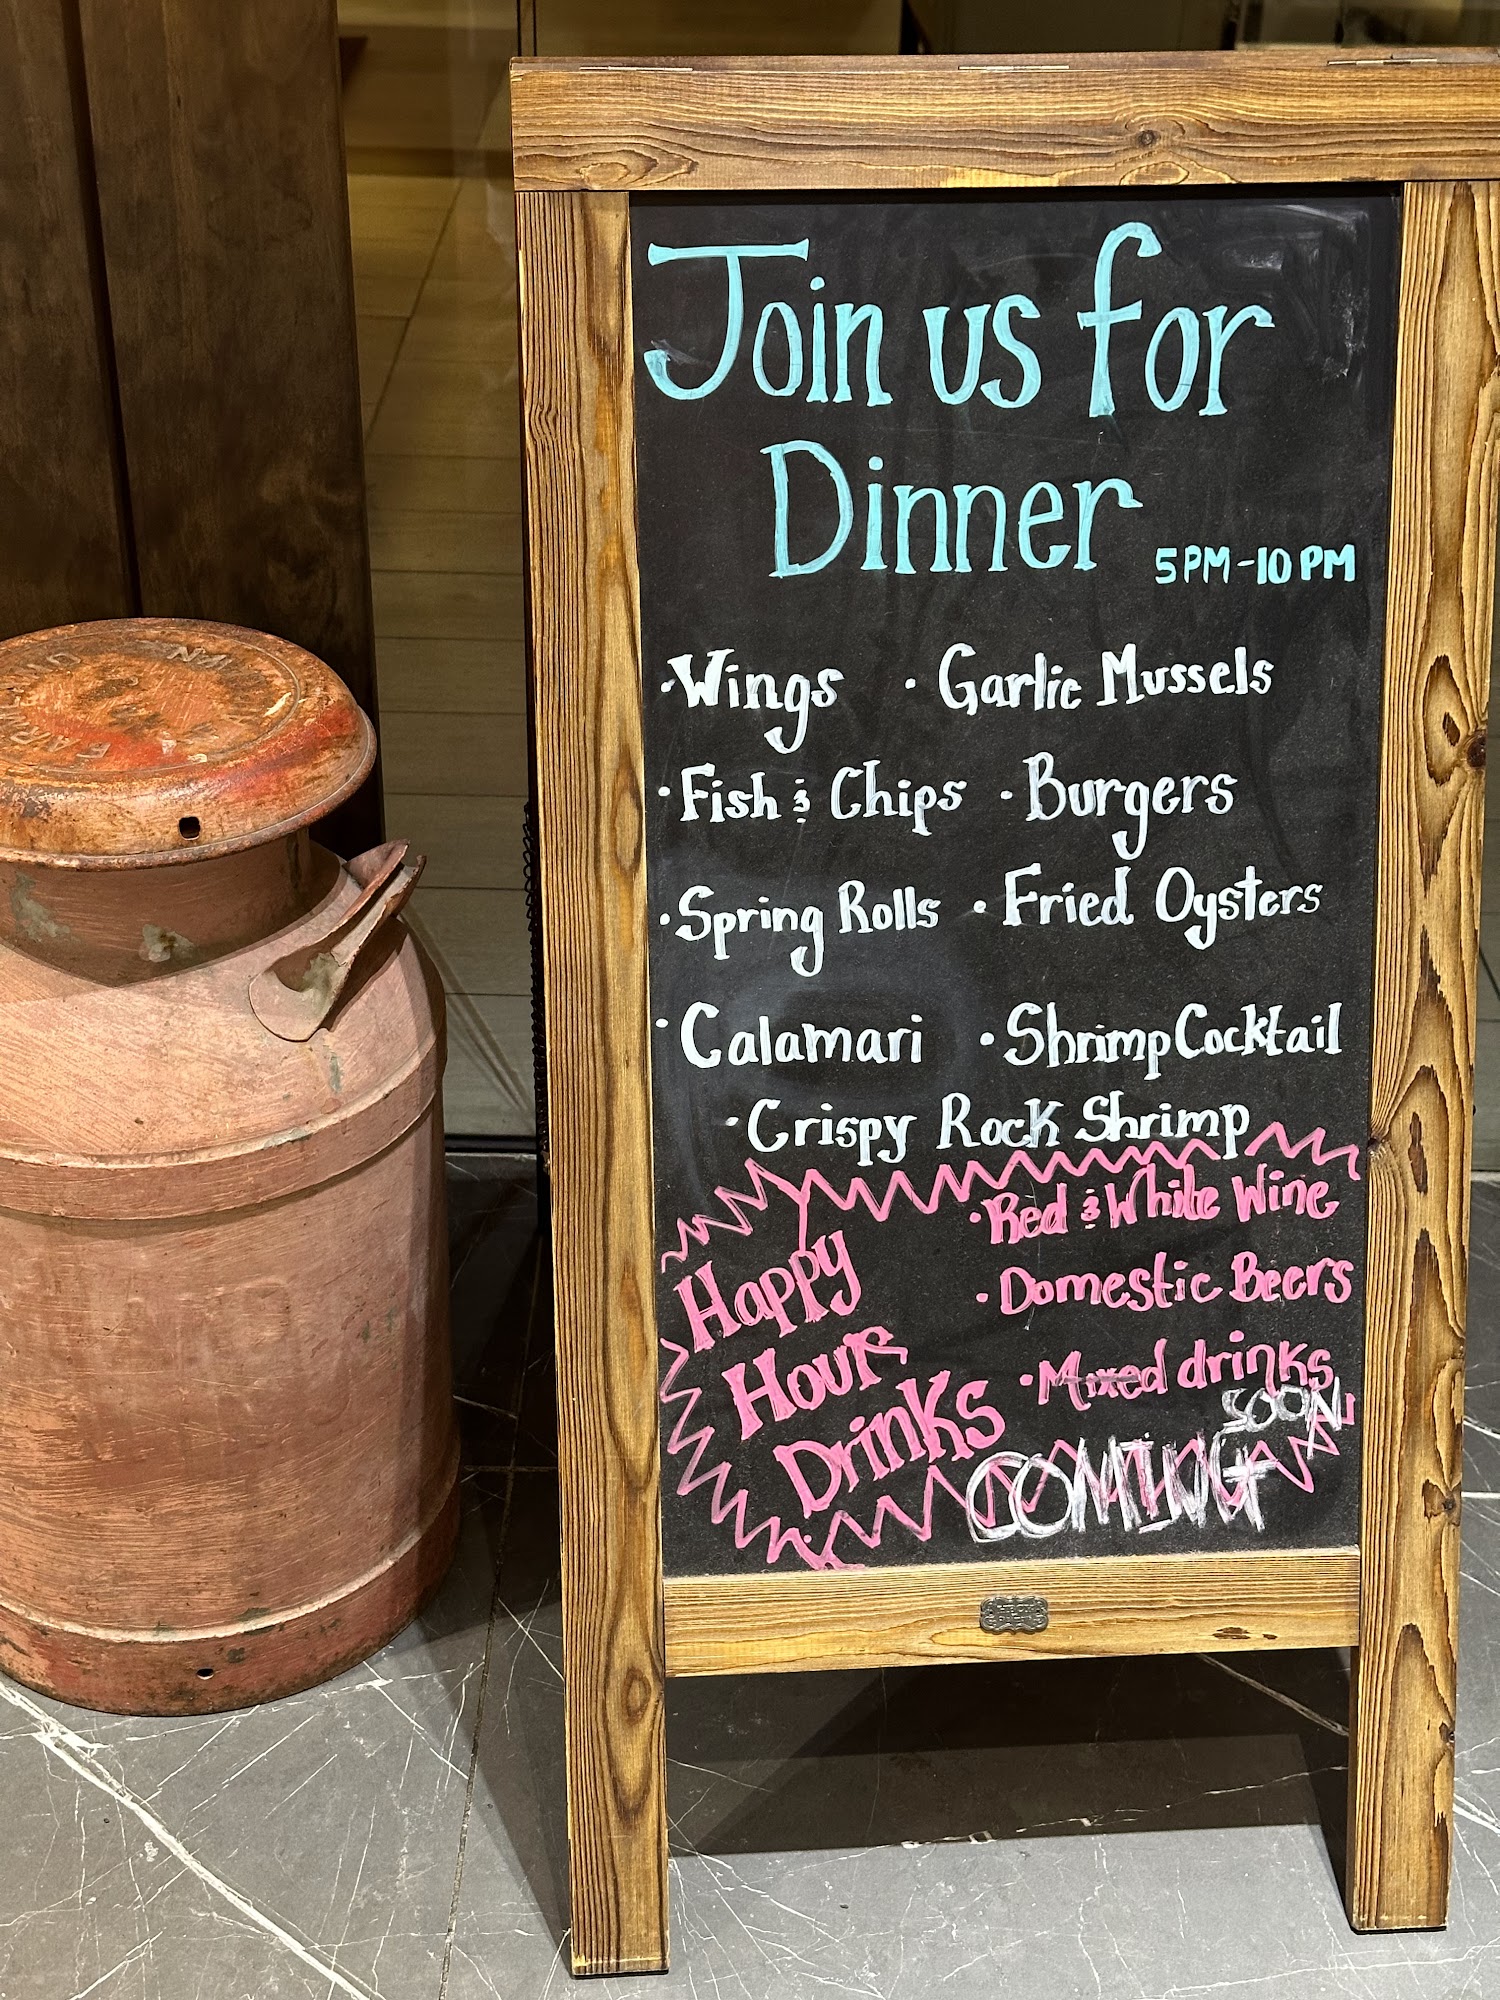 Join us for
Dinner 5PM-10PM
·Wings · Garlic Mussels
·Fish & Chips · Burgers
·Spring Rolls · Fried Oysters
·Calamari · Shrimp Cocktail
·Crispy Rock Shrimp
Happy
Hour
Drinks
·Red & White Wine
·Domestic Beers
·Mixed drinks
COMING SOON